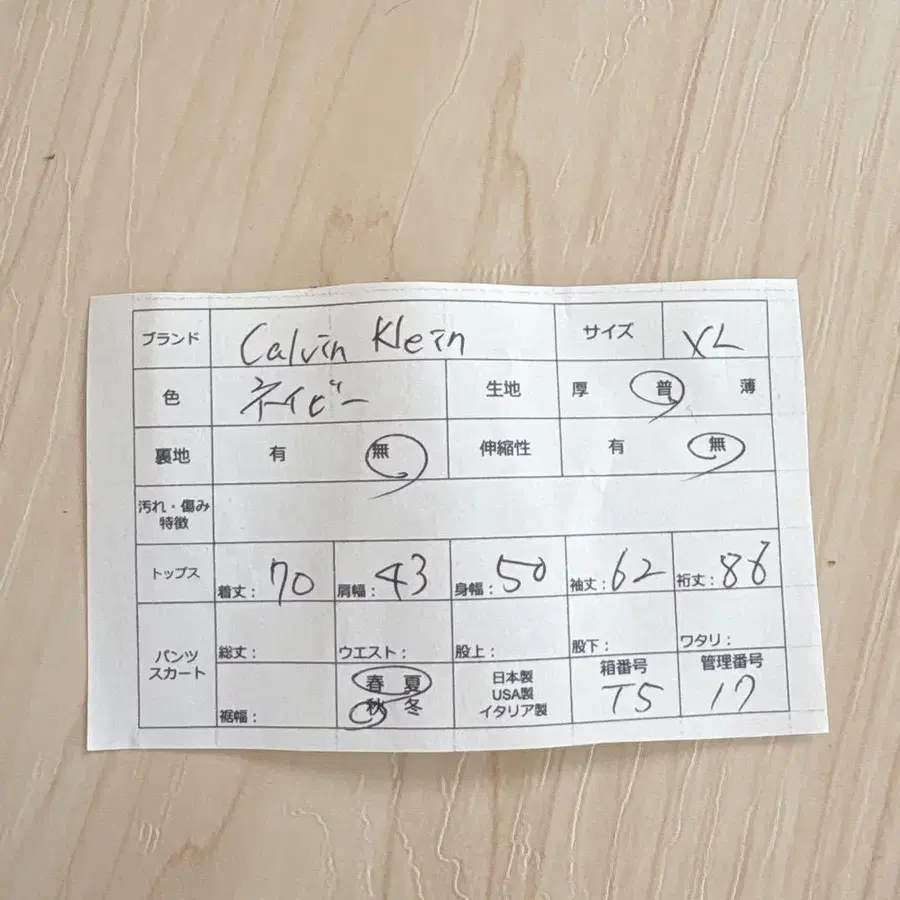 ブランド Calvin Klein サイズ XL
色 ネイビー 生地 厚 普 薄
裏地 有 無 伸縮性 有 無
汚れ・傷み
特徴
トップス 着丈：70 肩幅：43 身幅：50 袖丈：62 裄丈：86
パンツ
スカート
総丈： ウエスト： 股上： 股下： ワタリ：
裾幅：
春 夏
秋 冬
日本製
USA製
イタリア製
箱番号
T5
管理番号
17